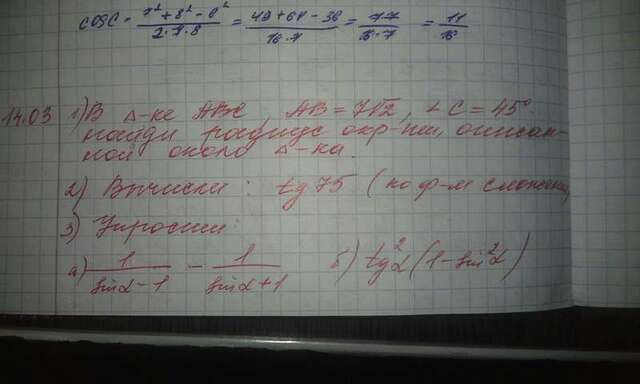 cos C = 7² + 8² - 6² / 2·7·8 = 49 + 64 - 36 / 16·7 = 77 / 16·7 = 11 / 16
14.03 1) В Δ-ке ABC, AB = 7√2, ∠C = 45°
найди радиус окр-ти, описан-
ной около Δ-ка.
2) Вычисли: tg 75 (по ф-м сложения)
3) Упрости:
а) 1 / sinα - 1 - 1 / sinα + 1 б) tg²α (1 - sin²α)